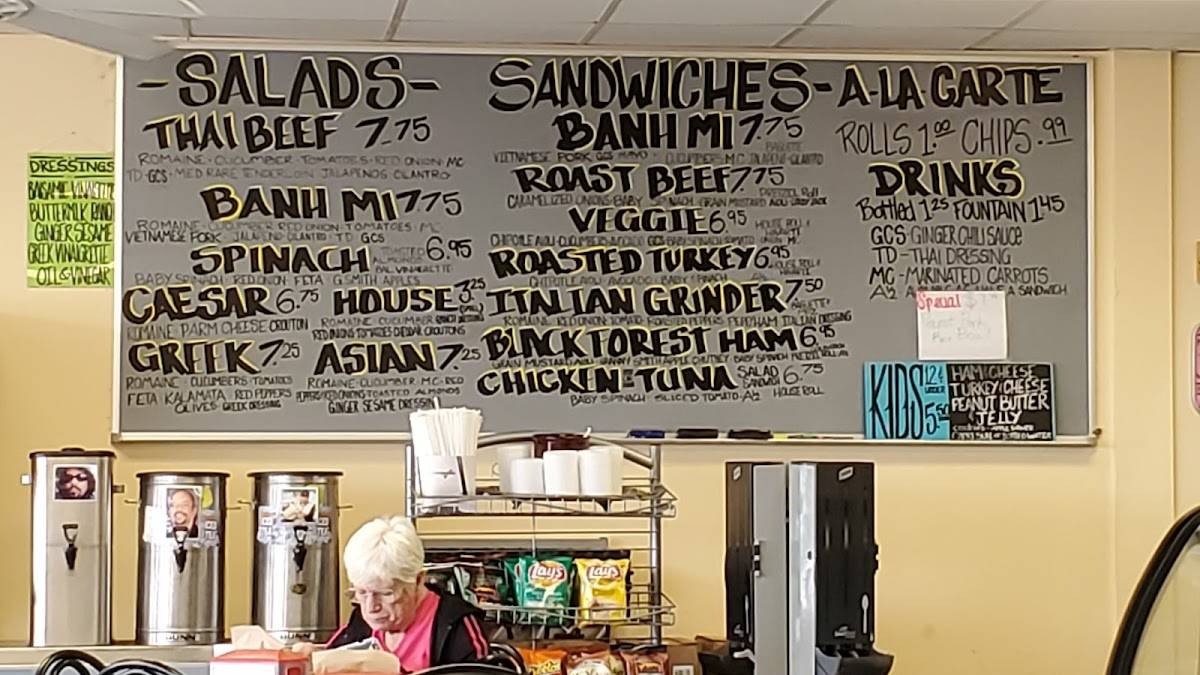 DRESSINGS
BALSAMIC VINAIGRETTE
BUTTERMILK RANCH
GINGER SESAME
GREEK VINAIGRETTE
OIL & VINEGAR
-SALADS-
THAI BEEF 7.75
ROMAINE · CUCUMBER · TOMATOES · RED ONION · MC
TD · GCS · MED RARE TENDERLOIN JALAPENOS CILANTRO
BANH MI 7.75
ROMAINE CUCUMBER RED ONION · TOMATOES · MC
VIETNAMESE PORK JALAPENO CILANTRO · TD GCS
SPINACH TOASTED ALMONDS 6.95
BAL. VINAIGRETTE
BABY SPINACH · RED ONION · FETA G. SMITH APPLES
CAESAR 6.75
ROMAINE PARM CHEESE CROUTON
HOUSE 3.25
ROMAINE · CUCUMBER
RED ONIONS TOMATOES CHEDDAR CROUTONS
GREEK 7.25
ROMAINE · CUCUMBERS · TOMATOES
FETA KALAMATA RED PEPPERS
OLIVES · GREEK DRESSING
ASIAN 7.25
ROMAINE · CUCUMBER · MC · RED
PEPPERS RED ONIONS TOASTED ALMONDS
GINGER SESAME DRESSING
SANDWICHES-
BANH MI 7.75
BAGUETTE
VIETNAMESE PORK GCS MAYO · CUCUMBERS · MC JALAPENO · CILANTRO
ROAST BEEF 7.75
PRETZEL Roll
CARAMELIZED ONIONS · BABY SPINACH GRAIN MUSTARD AIOLI
VEGGIE 6.95
HOUSE ROLL
CHIPOTLE AIOLI · CUCUMBERS · AVOCADO GCS · BABY SPINACH TOMATO MC
ROASTED TURKEY 6.95
HOUSE ROLL
CHIPOTLE AIOLI · AVOCADO · BABY SPINACH
ITALIAN GRINDER 7.50
BAGUETTE
ROMAINE · RED ONION · TOMATO · ROASTED PEPPERS PEPP/HAM ITALIAN DRESSING
BLACK FOREST HAM 6.95
GRAIN MUSTARD AIOLI · GRANNY SMITH APPLE CHUTNEY BABY SPINACH PRETZEL ROLL
CHICKEN - TUNA SALAD SANDWICH 6.75
BABY SPINACH · SLICED TOMATO · A½ HOUSE ROLL
A-LA CARTE
ROLLS 1.00 CHIPS .99
DRINKS
Bottled 1.25 FOUNTAIN 1.45
GCS - GINGER CHILI SAUCE
TD - THAI DRESSING
MC - MARINATED CARROTS
A½ A SANDWICH
Special
KIDS 12 & UNDER 5.50
HAM & CHEESE
TURKEY & CHEESE
PEANUT BUTTER
& JELLY
Lay's
Lay's
BUNN
BUNN